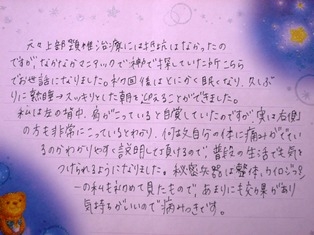 元々上部頸椎治療には抵抗はなかったの
ですが、なかなかマニアックで神戸で探していた所こちら
でお世話になりました。初回後はとにかく眠くなり、久しぶ
りに熟睡→スッキリとした朝を迎えることができました。
私は左の背中、肩がこっていると自覚していたのですが実は右側
の方も非常にこっているとわかり、何故自分の体に痛みがでてい
るのかわかりやすく説明して頂けるので、普段の生活で気を
つけられるようになりました。秘密兵器は整体、カイロジプシ
ーの私も初めて見たもので、あまりにも効果があり
気持ちがいいので病みつきです。